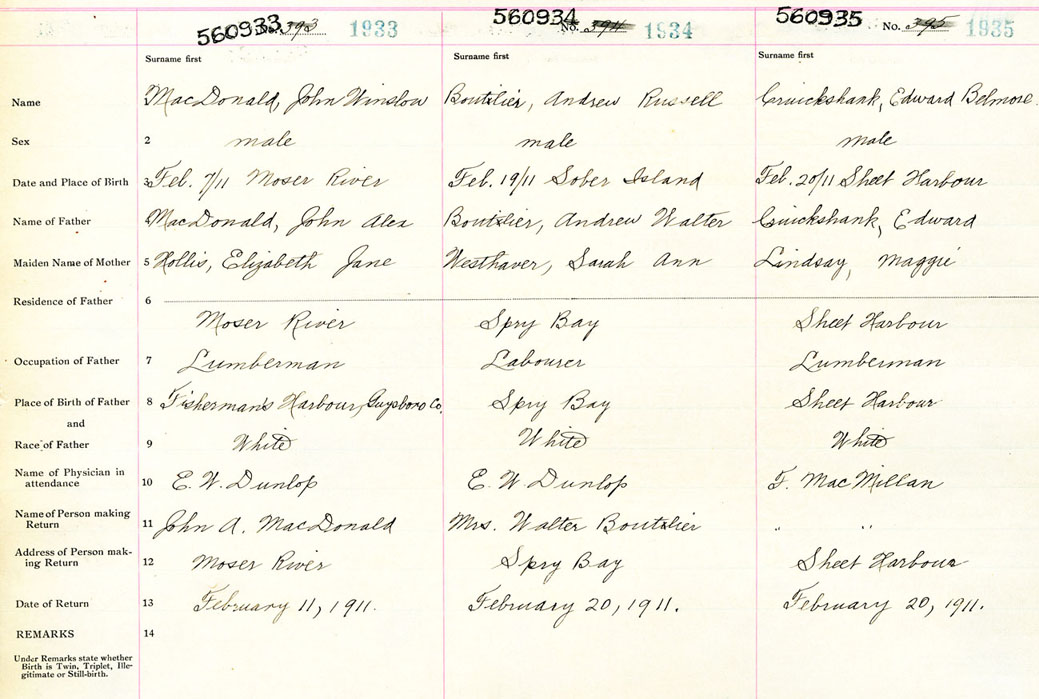 560933 No. 393 1933 560934 No. 394 1934 560935 No. 395 1935
Surname first Surname first Surname first
Name MacDonald, John Winslow Boutilier, Andrew Russell Cruickshank, Edward Belmore
Sex 2 male male male
Date and Place of Birth 3 Feb. 7/11 Moser River Feb. 19/11 Sober Island Feb. 20/11 Sheet Harbour
Name of Father MacDonald, John Alex Boutilier, Andrew Walter Cruickshank, Edward
Maiden Name of Mother 5 Hollis, Elizabeth Jane Westhaver, Sarah Ann Lindsay, Maggie
Residence of Father 6
Moser River Spry Bay Sheet Harbour
Occupation of Father 7 Lumberman Labourer Lumberman
Place of Birth of Father 8 Fisherman's Harbour, Guysboro Co. Spry Bay Sheet Harbour
and
Race of Father 9 White White White
Name of Physician in
attendance 10 E. W. Dunlop E. W. Dunlop F. MacMillan
Name of Person making
Return 11 John A. MacDonald Mrs. Walter Boutilier " "
Address of Person mak-
ing Return 12 Moser River Spry Bay Sheet Harbour
Date of Return 13 February 11, 1911. February 20, 1911. February 20, 1911.
REMARKS 14
Under Remarks state whether
Birth is Twin, Triplet, Ille-
gitimate or Still-birth.